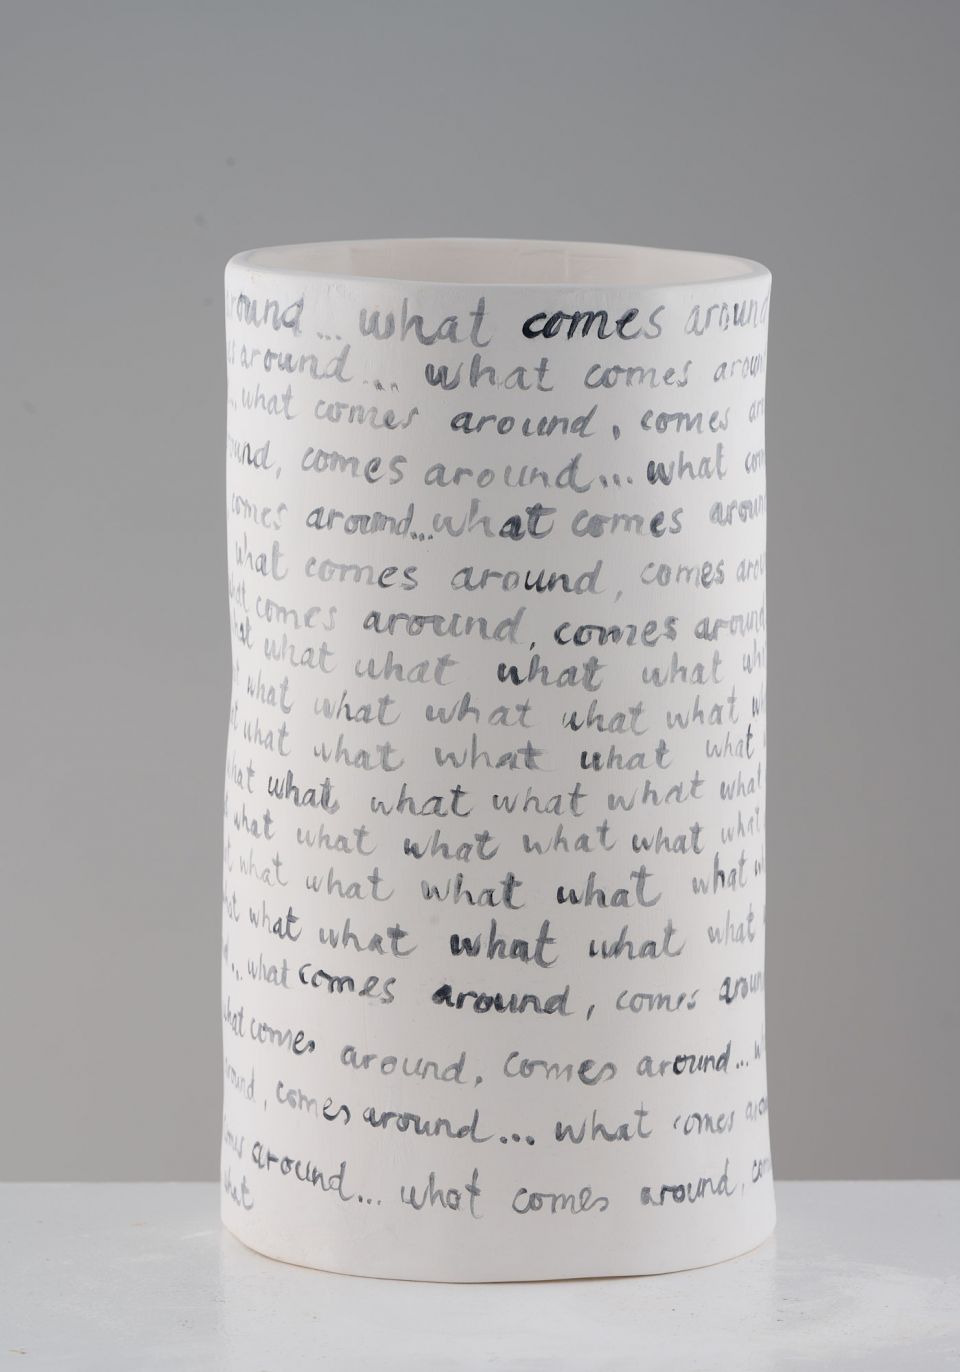 around... what comes around
around... what comes around
...what comes around, comes
comes around... what
comes around...what comes around
what comes around, comes
what comes around, comes around
what what what what
what what what what what
what what what what what
what what what what what what
what what what what what what
what what what what what
what what what what what
...what comes around, comes around
what comes around, comes around...
around, comes around... what comes
comes around... what comes around,
what